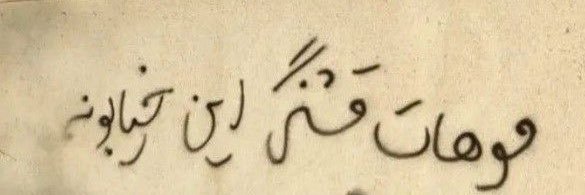 موهات قشنگ ترین خیابونه